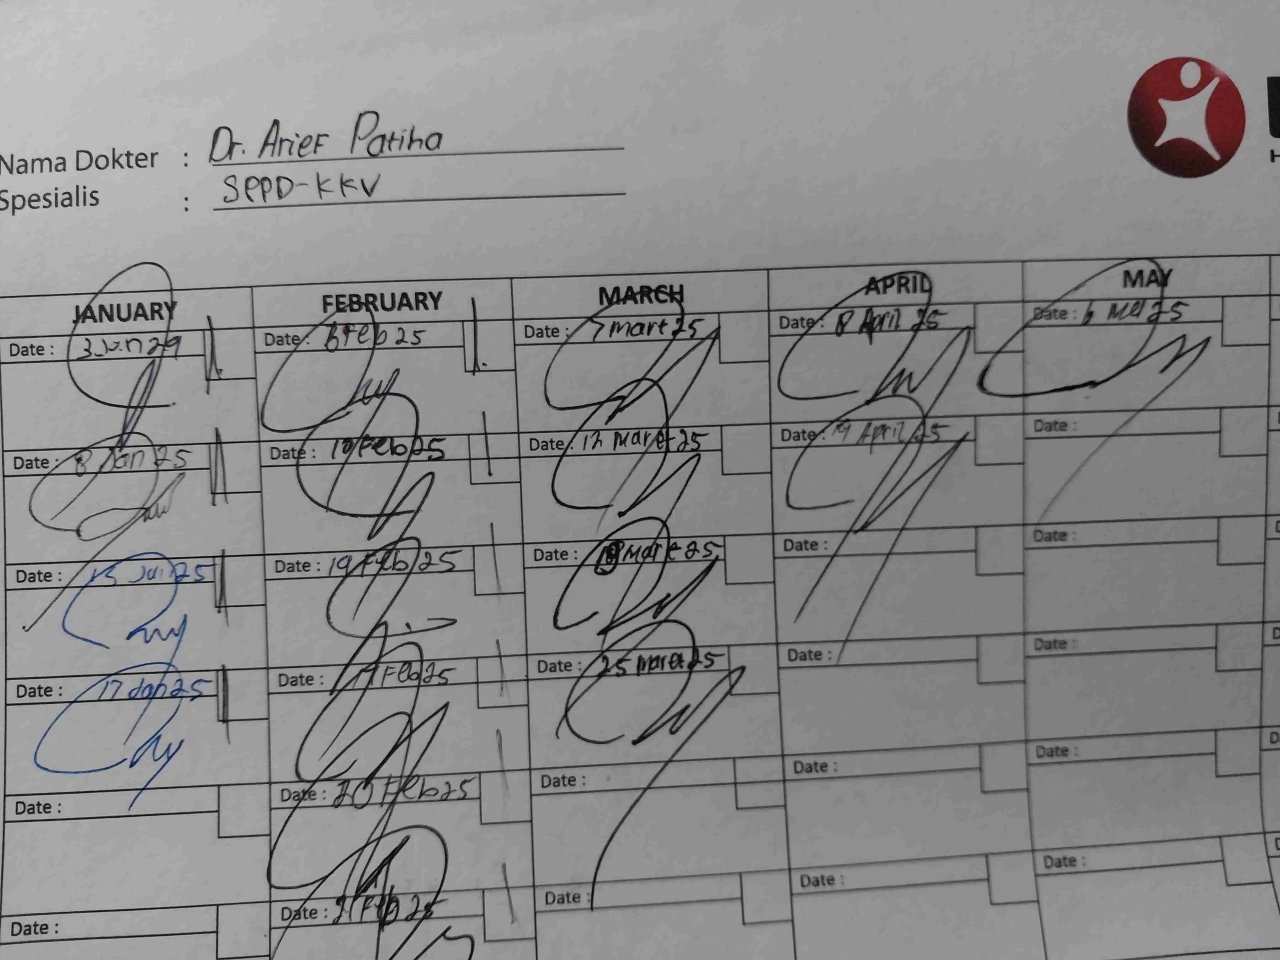 Nama Dokter : Dr. Arief Patiha
Spesialis : SPPD-KKV
H
JANUARY FEBRUARY MARCH APRIL MAY
Date : 3 Jan 29 Date : 6 Feb 25 Date : 7 mart 25 Date : 8 April 25 Date : 6 Mei 25
Date : 8 Jan 25 Date : 10 Feb 25 Date : 12 Maret 25 Date : 19 April 25 Date :
Date : 13 Jan 25 Date : 19 Feb 25 Date : 18 Maret 25 Date : Date :
Date : 17 Jan 25 Date : Feb 25 Date : 25 Maret 25 Date : Date :
Date : Date : 20 Feb 25 Date : Date : Date :
Date : Date : 21 Feb 25 Date : Date : Date :